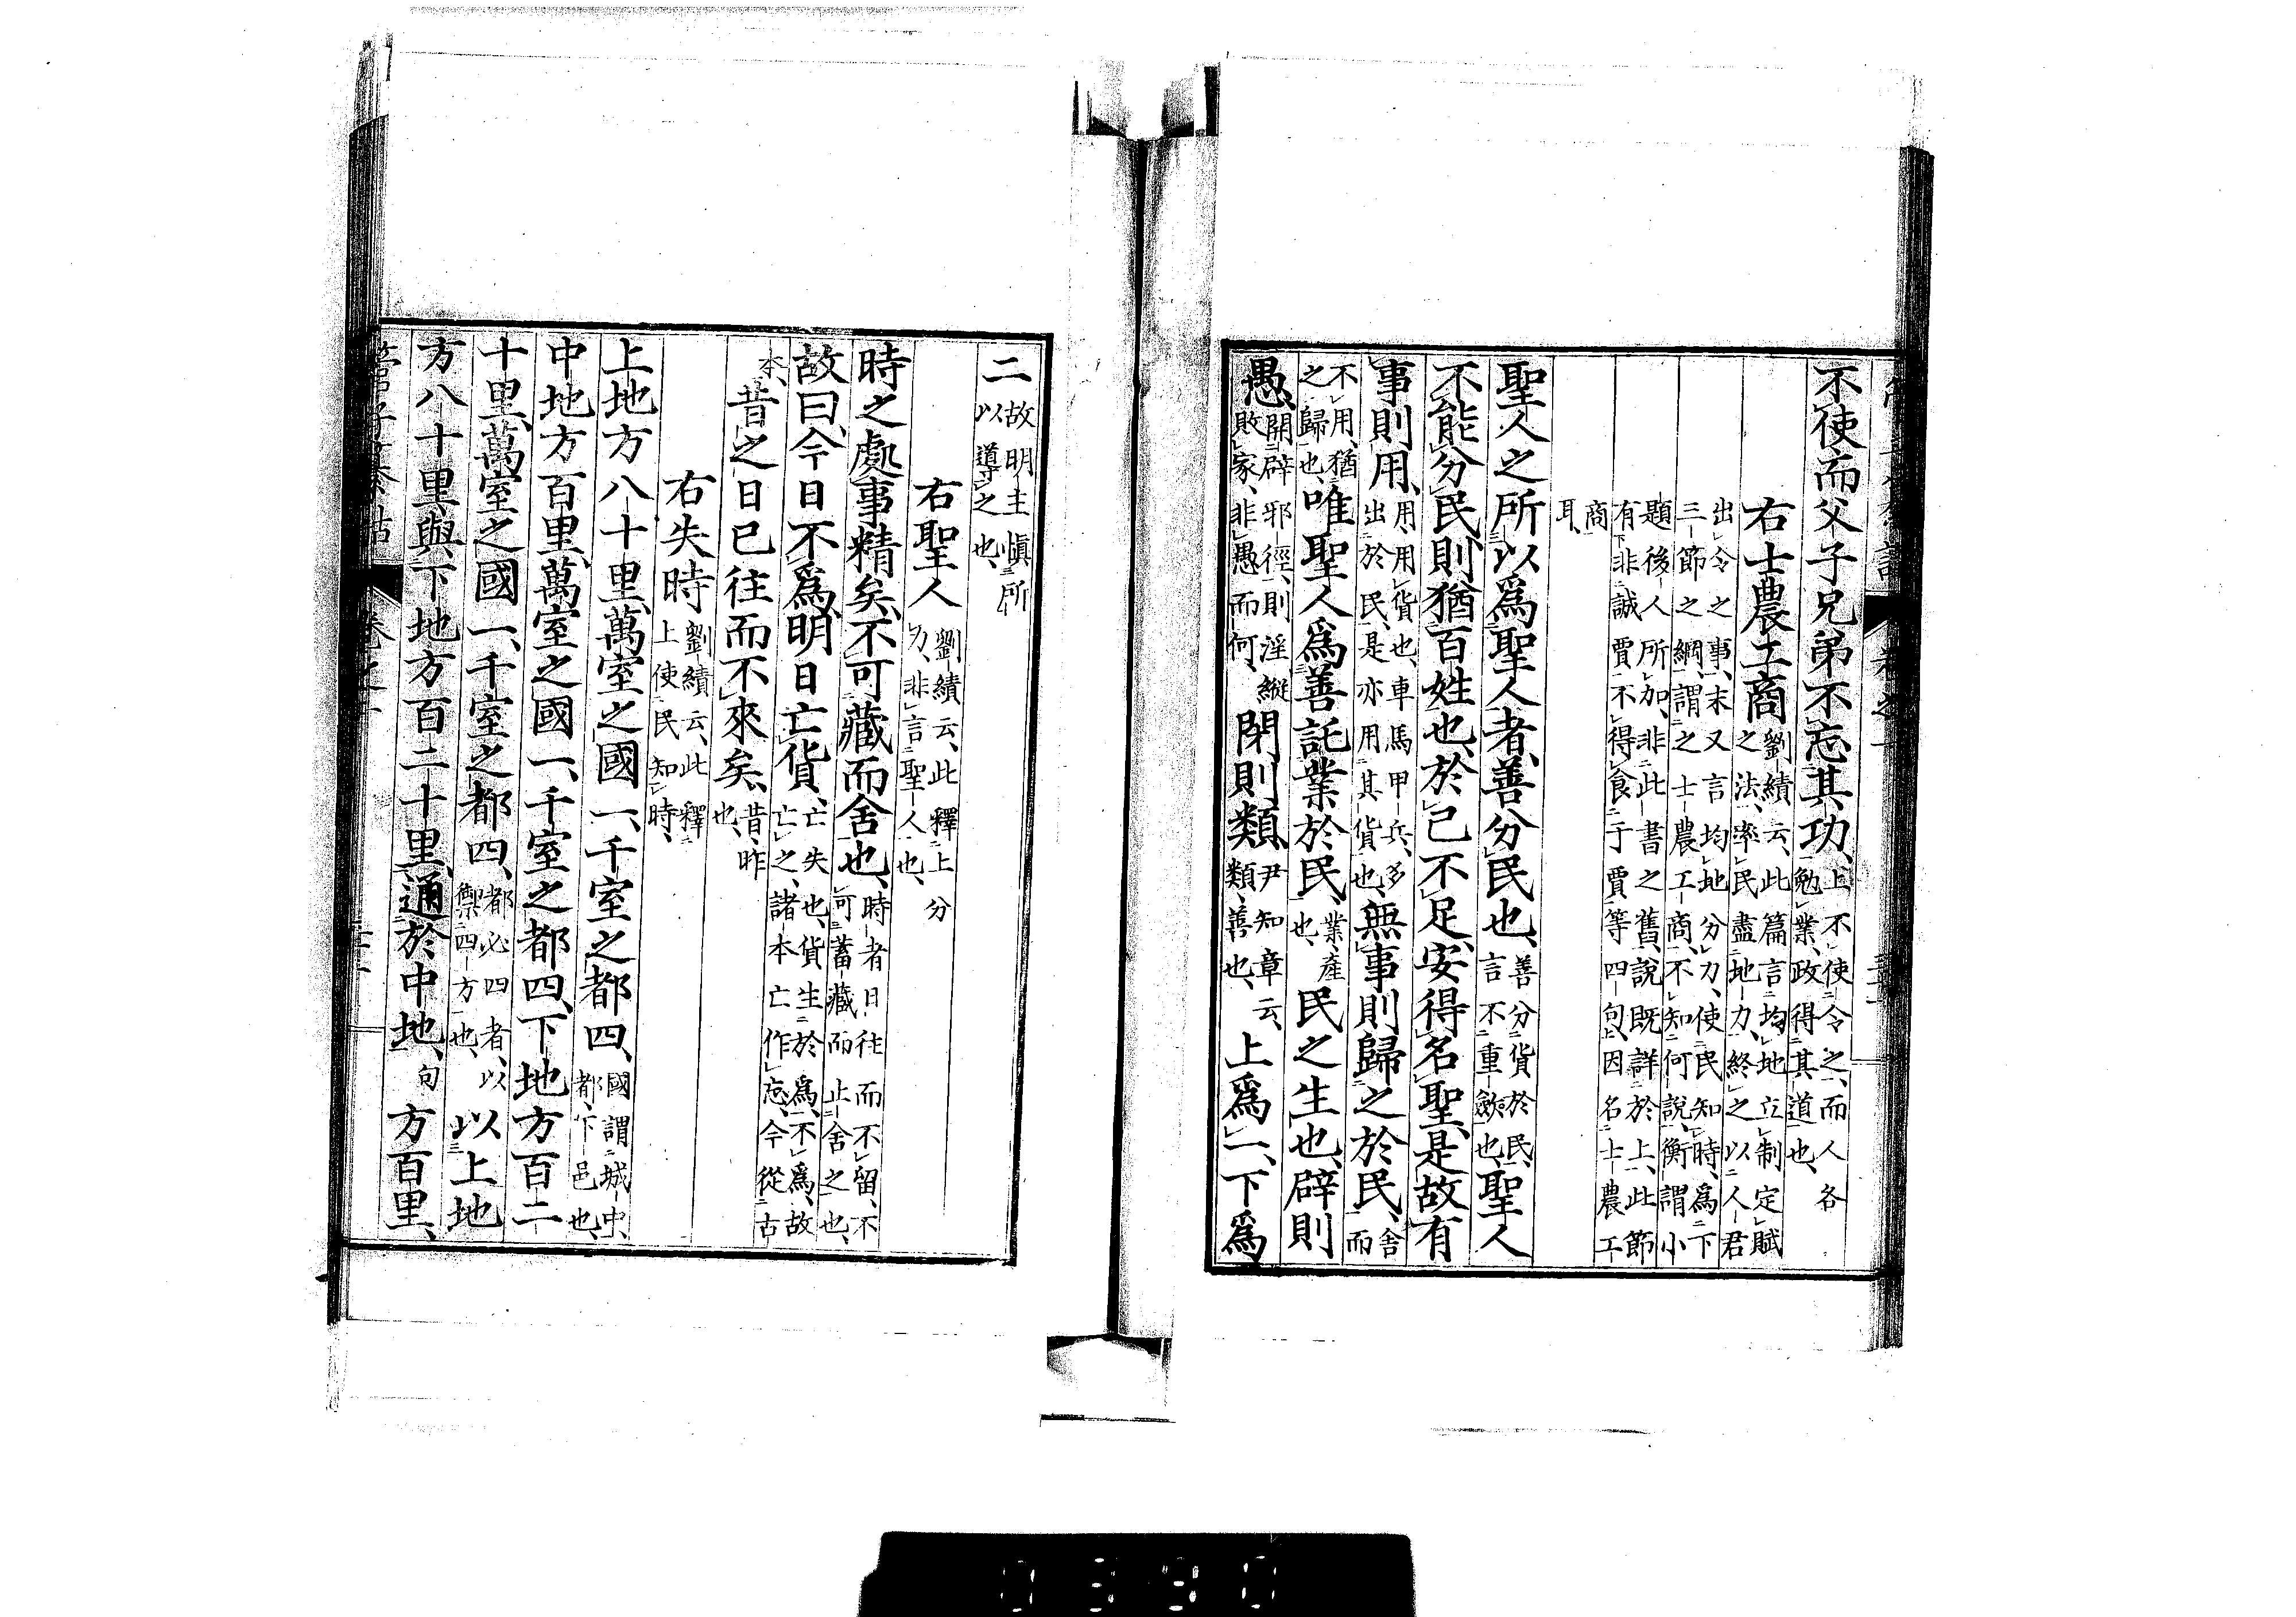 不使而父子兄弟不忘其功、上不使令之、而人各勉業、政得其道也、
右士農工商劉績云、此篇言均地立制定賦之法、率民盡地力、終之以人君
出令之事、末又言均地分力、使民知時、爲下三節之綱、謂之士農工商、不知何說、衡謂小
題後人所加、非此書之舊、說既詳於上、此節有非誠賈不得食于賈等四句、因名士農工
商耳、
聖人之所以爲聖人者、善分民也、善分貨於民、言不重歛也、聖人
不能分民、則猶百姓也、於己不足、安得名聖、是故有
事則用、用、用貨也、車馬甲兵、多出於民、是亦用其貨也、無事則歸之於民、舍而
不用、猶之歸也、唯聖人爲善託業於民、業、產也、民之生也、辟則
愚、開辟邪徑、則淫縱敗家、非愚而何、閉則類、尹知章云、類、善也、上爲一、下爲
二、故明主愼所以導之也、
右聖人劉績云、此釋上分力、非言聖人也、
時之處事精矣、不可藏而舍也、時者日往而不留、不可蓄藏而止舍之也、
故曰、今日不爲、明日亡貨、亡失也、貨生於爲、不爲、故亡之、諸本亡作忘、今從古
本、昔之日已往而不來矣、昔、昨也、
右失時劉績云、此釋上使民知時、
上地方八十里、萬室之國一、千室之都四、國謂城中、都、下邑也、
中地方百里、萬室之國一、千室之都四、下地方百二
十里、萬室之國一、千室之都四、都必四者、以禦四方也、以上地
方八十里、與下地方百二十里、通於中地、句方百里、